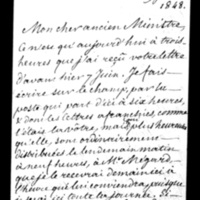 1848.
Mon cher ancien Ministre,
ce n'est qu'aujourd'hui à trois
heures que j'ai reçu votre lettre
d'avant hier 7 Juin. Je fais
écrire sur le champ par la
poste qui part d'ici à six heures,
& dont les lettres affranchies, comme
l'étais la vôtre, les heures
qu'elle, sont ordinairement
distribuées le lendemain matin
à neuf heures, à Mr.
que je le recevrai demain ici à
l'heure qui lui conviendra, puisque
ici toute la journée.